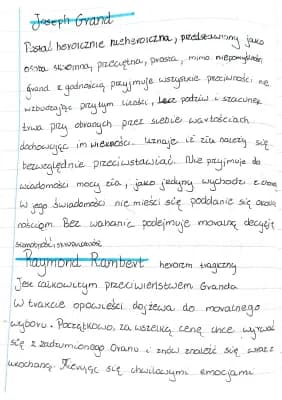 Joseph Grand
Postać heroicznie nieheroiczna, przedstawiony jako
osoba skromna, przeciętna, prosta, mimo niepomyślności
Grand z godnością przyjmuje wszystkie przeciwności nie
wzbudzając przytym litość, lecz podziw i szacunek
trwa przy obranych przez siebie wartościach
dochowując im wierności. Uznaje iż złu należy się
bezwzględnie przeciwstawiać. Nie przyjmuje do
wiadomości mocy zła, jako jedyny wychodzi z
W jego świadomości nie mieści się poddanie się
nościom. Bez wahania podejmuje moralną decyzję
samotność
Raymond Rambert heroizm tragiczny
Jest całkowitym przeciwieństwem Granda
W trakcie opowieści dojrzewa do moralnego
wyboru. Początkowo, za wszelką cenę chce wyrwać
się z zadżumionego Oranu i znów znaleźć się wraz z
ukochaną. Kierując się chwilowymi emocjami